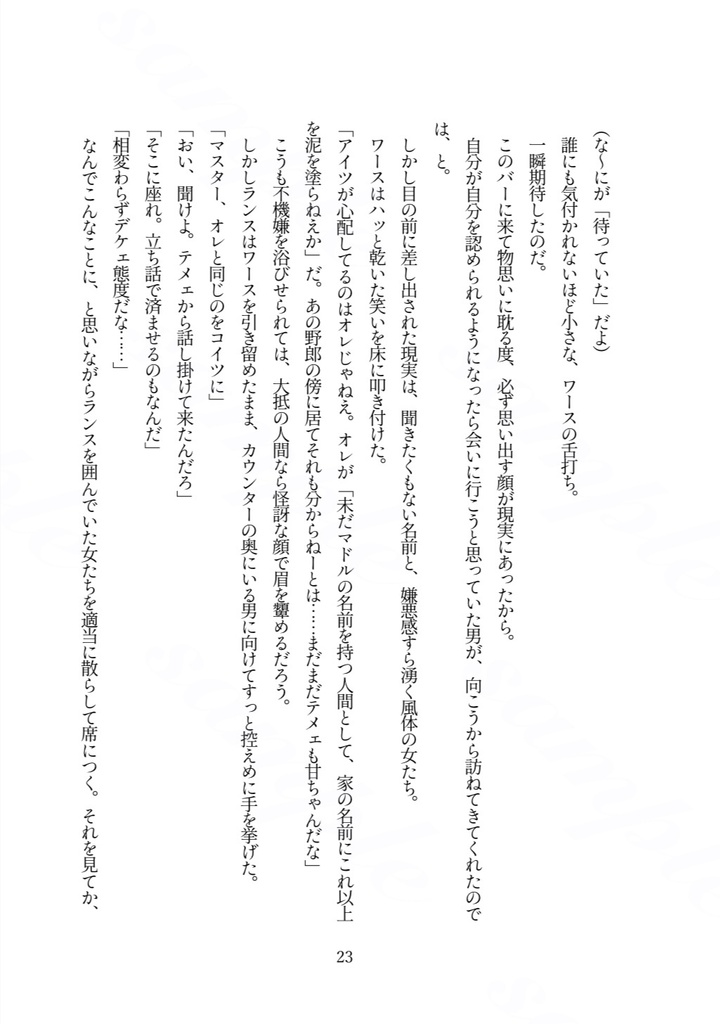 (な～にが「待っていた」だよ)
誰にも気付かれないほど小さな、ワースの舌打ち。
一瞬期待したのだ。
このバーに来て物思いに耽る度、必ず思い出す顔が現実にあったから。
自分が自分を認められるようになったら会いに行こうと思っていた男が、向こうから訪ねてきてくれたので
は、と。
しかし目の前に差し出された現実は、聞きたくもない名前と、嫌悪感すら湧く風体の女たち。
ワースはハッと乾いた笑いを床に叩き付けた。
「アイツが心配してるのはオレじゃねえ。オレが「未だマドルの名前を持つ人間として、家の名前にこれ以上
を泥を塗らねえか」だ。あの野郎の傍に居てそれも分からねーとは……まだまだテメェも甘ちゃんだな」
こうも不機嫌を浴びせられては、大抵の人間なら怪訝な顔で眉を顰めるだろう。
しかしランスはワースを引き留めたまま、カウンターの奥にいる男に向けてすっと控えめに手を挙げた。
「マスター、オレと同じのをコイツに」
「おい、聞けよ。テメェから話し掛けて来たんだろ」
「そこに座れ。立ち話で済ませるのもなんだ」
「相変わらずデケェ態度だな……」
なんでこんなことに、と思いながらランスを囲んでいた女たちを適当に散らして席につく。それを見てか、
23
sample